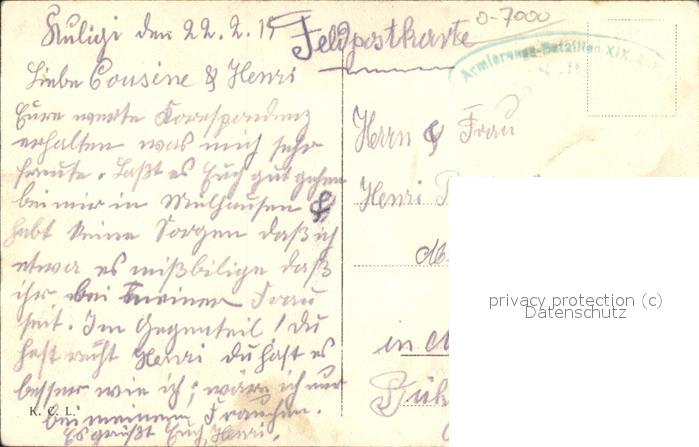 Kuligi den 22.2.15
Feldpostkarte
0-7000
Armierungs-Bataillon XIX.
Liebe Cousine & Henri
Eure werte Korrespondenz
erhalten was mich sehr
freute. Laßt es Euch gut gehen
bei mir in Mülhausen &
habt keine Sorgen daß ich
etwa es mißbilige daß
ihr bei meiner Frau
seit. Im Gegenteil! Du
hast recht Henri du hast es
besser wie ich; wäre ich nur
bei meinem Frauchen.
Es grüßt Euch, Henri.
K. C. L.
Herrn & Frau
Henri
in
privacy protection (c)
Datenschutz